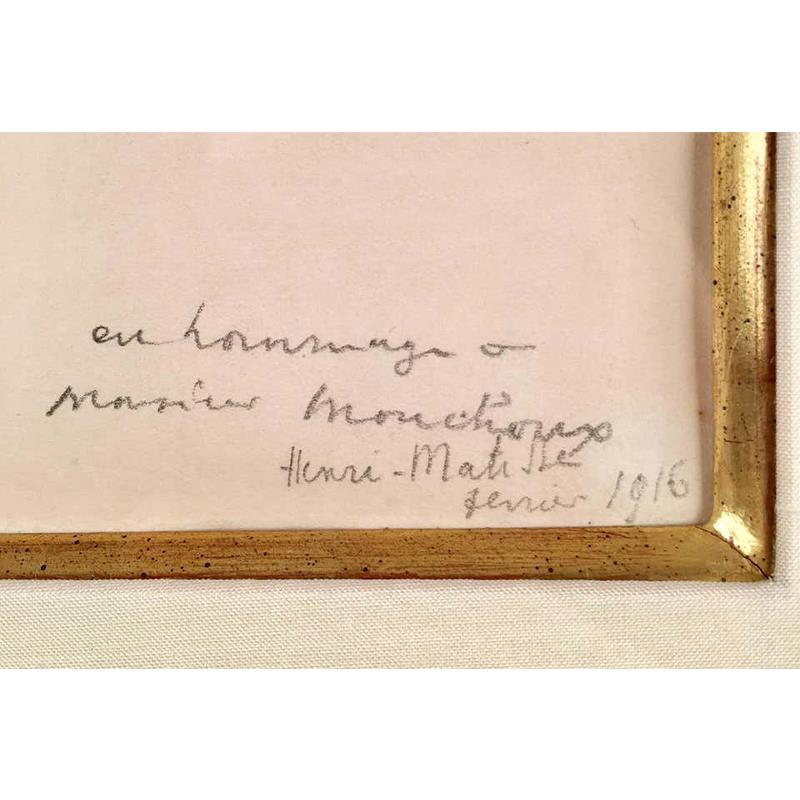 en hommage a
Monsieur Mouchoux
Henri-Matisse
fevrier 1916